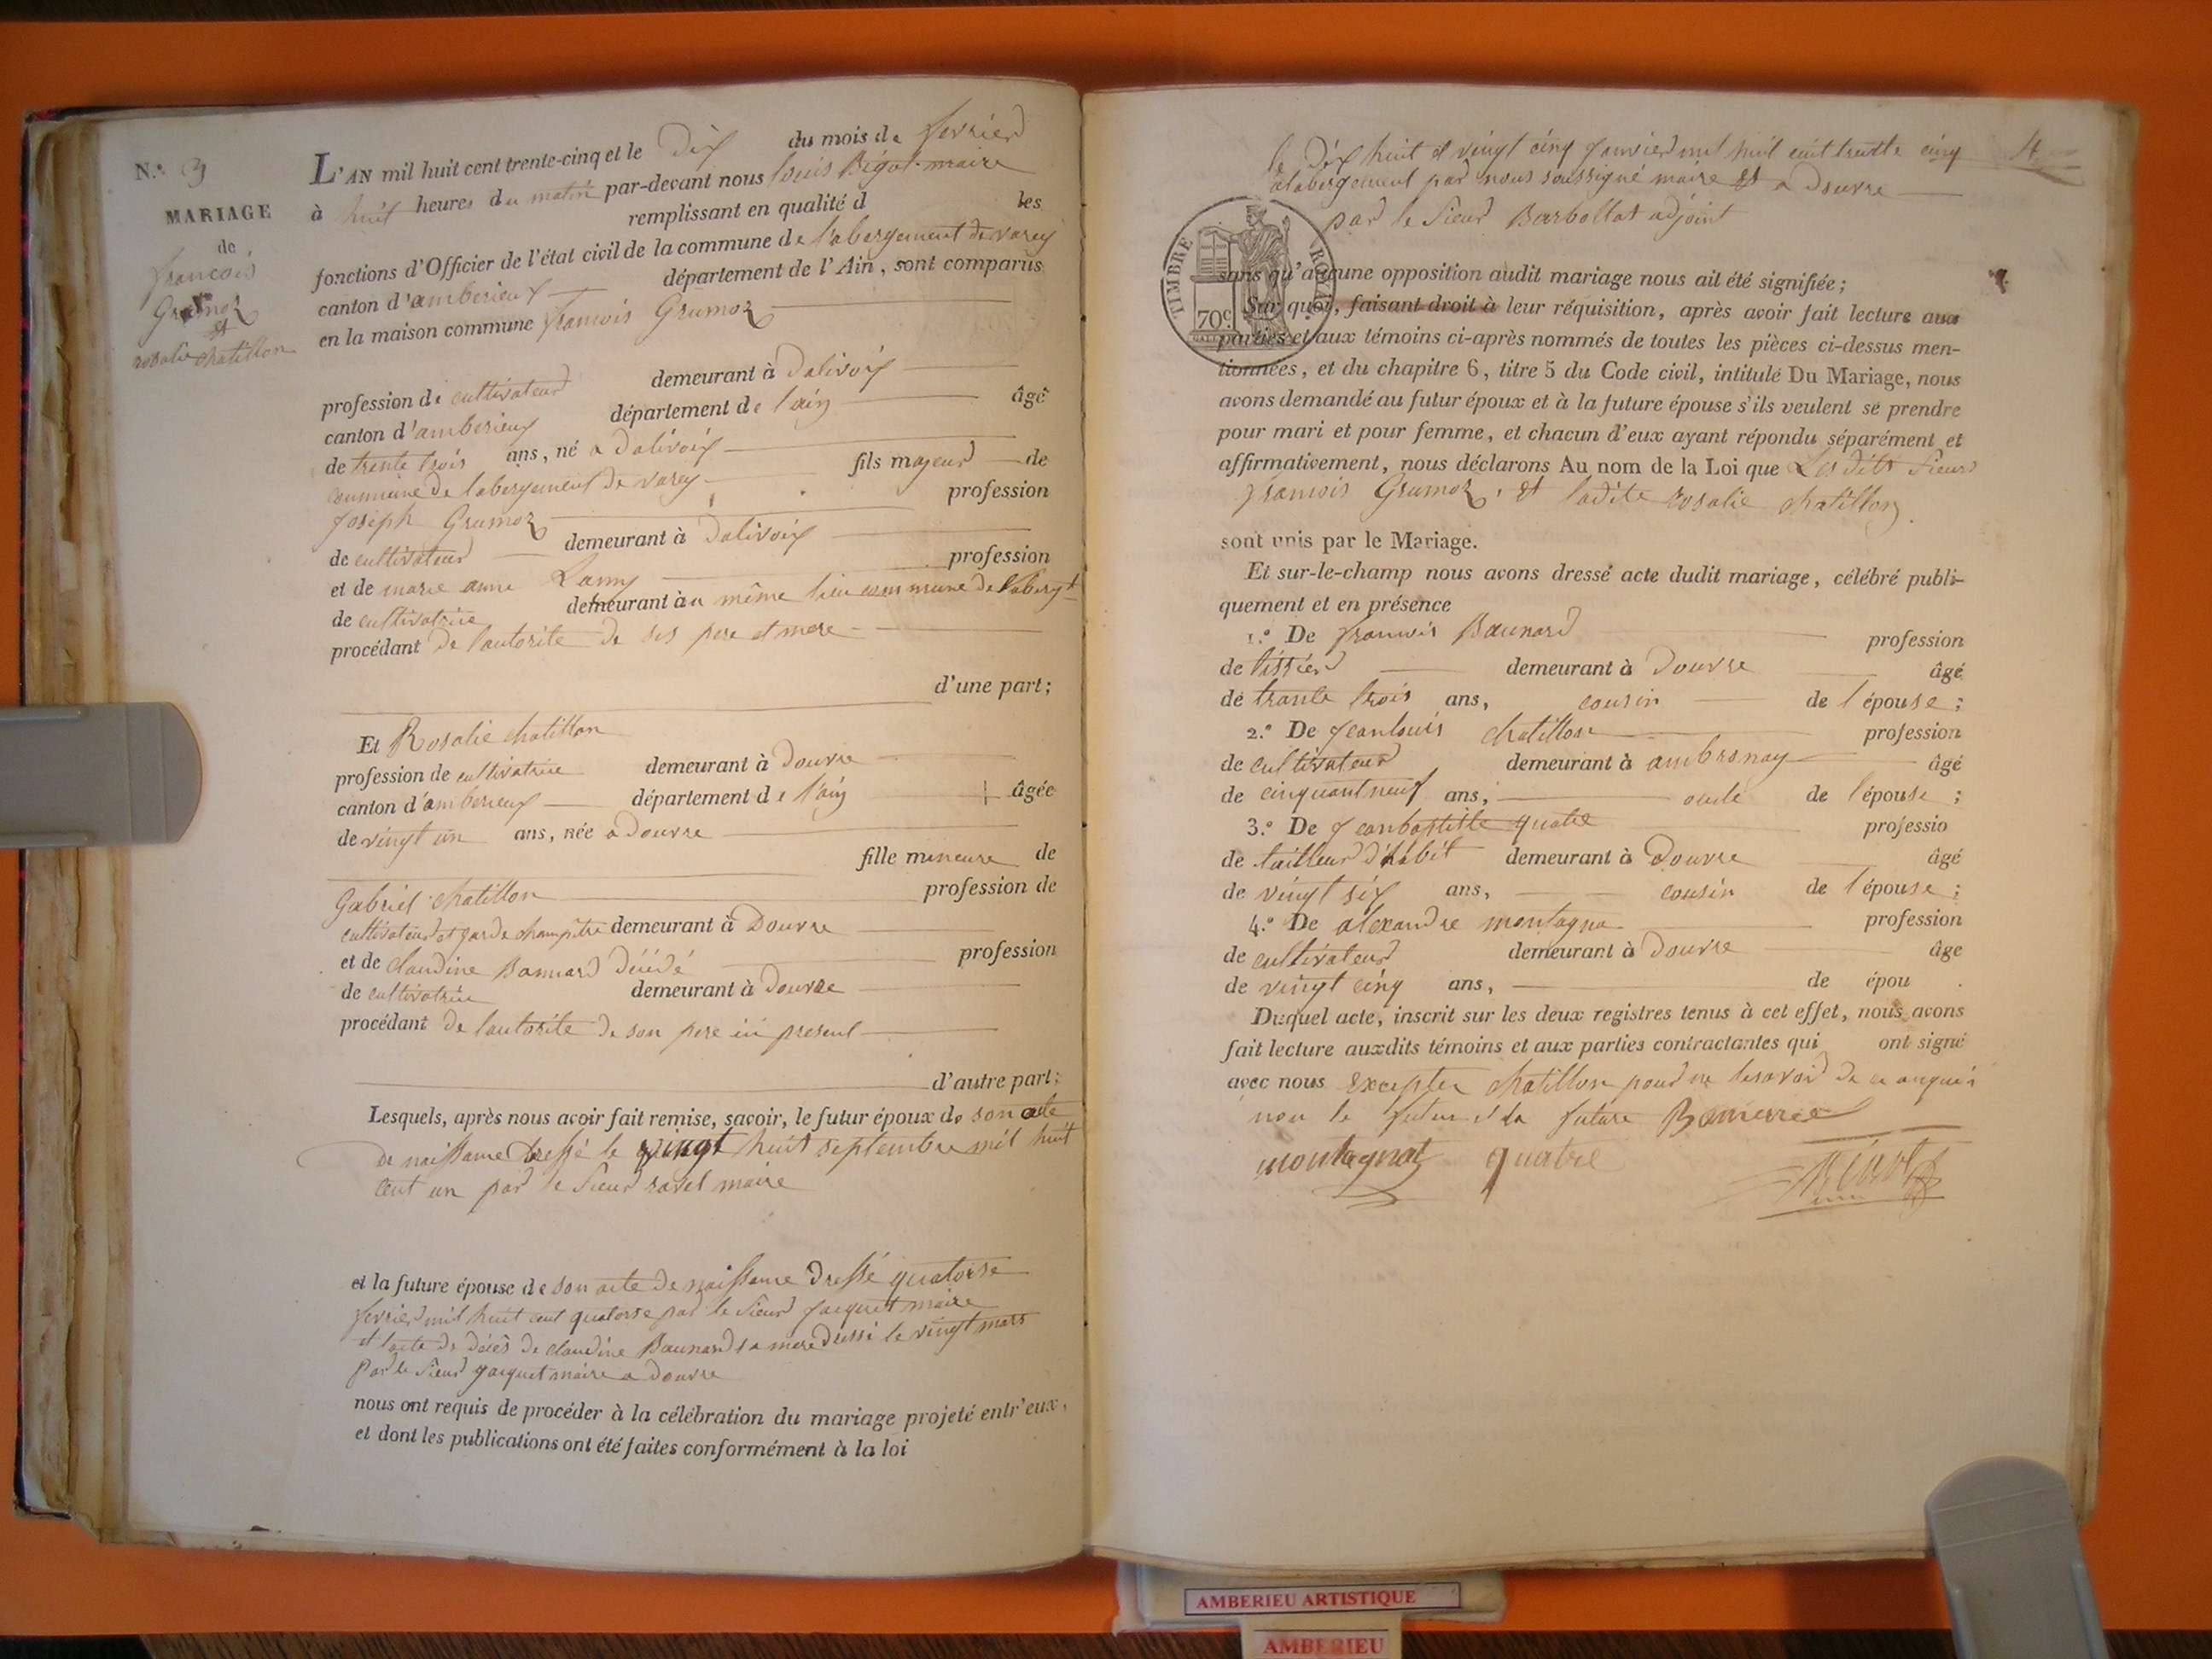 N.° 3
MARIAGE
de
francois
Grumoz
et
rosalie chatillon
L'AN mil huit cent trente-cinq et le Dix du mois de fevrier
à huit heures du matin par-devant nous louis Bégot maire
remplissant en qualité d les
fonctions d'Officier de l'état civil de la commune de l'abergement de varey
canton d'amberieux département de l'Ain, sont comparus
en la maison commune francois Grumoz
profession de cultivateur demeurant à Dalivoix
canton d'amberieux département de l'ain âgé
de trente trois ans, né a Dalivoix
commune de labergement de varey fils majeur de
Joseph Grumoz profession
de cultivateur demeurant à Dalivoix
et de marie anne Lamy profession
de cultivatrice demeurant au même lieu commune de l'abergt
procédant de l'autorité de ses pere et mere
d'une part;
Et Rosalie chatillon
profession de cultivatrice demeurant à Douvre
canton d'amberieux département de l'ain âgée
de vingt un ans, née a Douvre
fille mineure de
Gabriel chatillon profession de
cultivateur et garde champêtre demeurant à Douvre
et de claudine Bonnard Décédé profession
de cultivatrice demeurant à Douvre
procédant de l'autorité de son pere ici present
d'autre part;
Lesquels, après nous avoir fait remise, savoir, le futur époux de son acte
de naissance dressé le vingt huit septembre mil huit
cent un par le Sieur ravet maire
et la future épouse de son acte de naissance dressé quatorse
fevrier mil huit cent quatorse par le sieur Jacquet maire
et l'acte de décès de claudine Baunard sa mere dressé le vingt mars
par le Sieur Jacquet maire a Douvre
nous ont requis de procéder à la célébration du mariage projeté entr'eux,
et dont les publications ont été faites conformément à la loi
4
le Dix huit et vingt cinq janvier mil huit cent trente cinq
a labergement par nous soussigné maire et a Douvre
par le Sieur Barbollat adjoint
TIMBRE ROYAL
70c.
sans qu'aucune opposition audit mariage nous ait été signifiée;
Sur quoi, faisant droit à leur réquisition, après avoir fait lecture aux
parties et aux témoins ci-après nommés de toutes les pièces ci-dessus men-
tionnées, et du chapitre 6, titre 5 du Code civil, intitulé Du Mariage, nous
avons demandé au futur époux et à la future épouse s'ils veulent se prendre
pour mari et pour femme, et chacun d'eux ayant répondu séparément et
affirmativement, nous déclarons Au nom de la Loi que Les dits Sieurs
francois Grumoz, et ladite rosalie chatillon
sont unis par le Mariage.
Et sur-le-champ nous avons dressé acte dudit mariage, célébré publi-
quement et en présence
1.° De francois Baunard profession
de tissier demeurant à Douvre âgé
de trante trois ans, cousin de l'épouse;
2.° De Jeanlouis chatillon profession
de cultivateur demeurant à ambronay âgé
de cinquant neuf ans, oncle de l'épouse;
3.° De Jeanbaptiste quatre professio
de tailleur d'habit demeurant à Douvre âgé
de vingt six ans, cousin de l'épouse;
4.° De alexandre montagna profession
de cultivateur demeurant à Douvre âge
de vingt cinq ans, de épou
Duquel acte, inscrit sur les deux registres tenus à cet effet, nous avons
fait lecture auxdits témoins et aux parties contractantes qui ont signé
avec nous excepter chatillon pour ne le savoir de ce enquis
non le futur et la future
montagnat quatre
AMBERIEU ARTISTIQUE
AMBERIEU